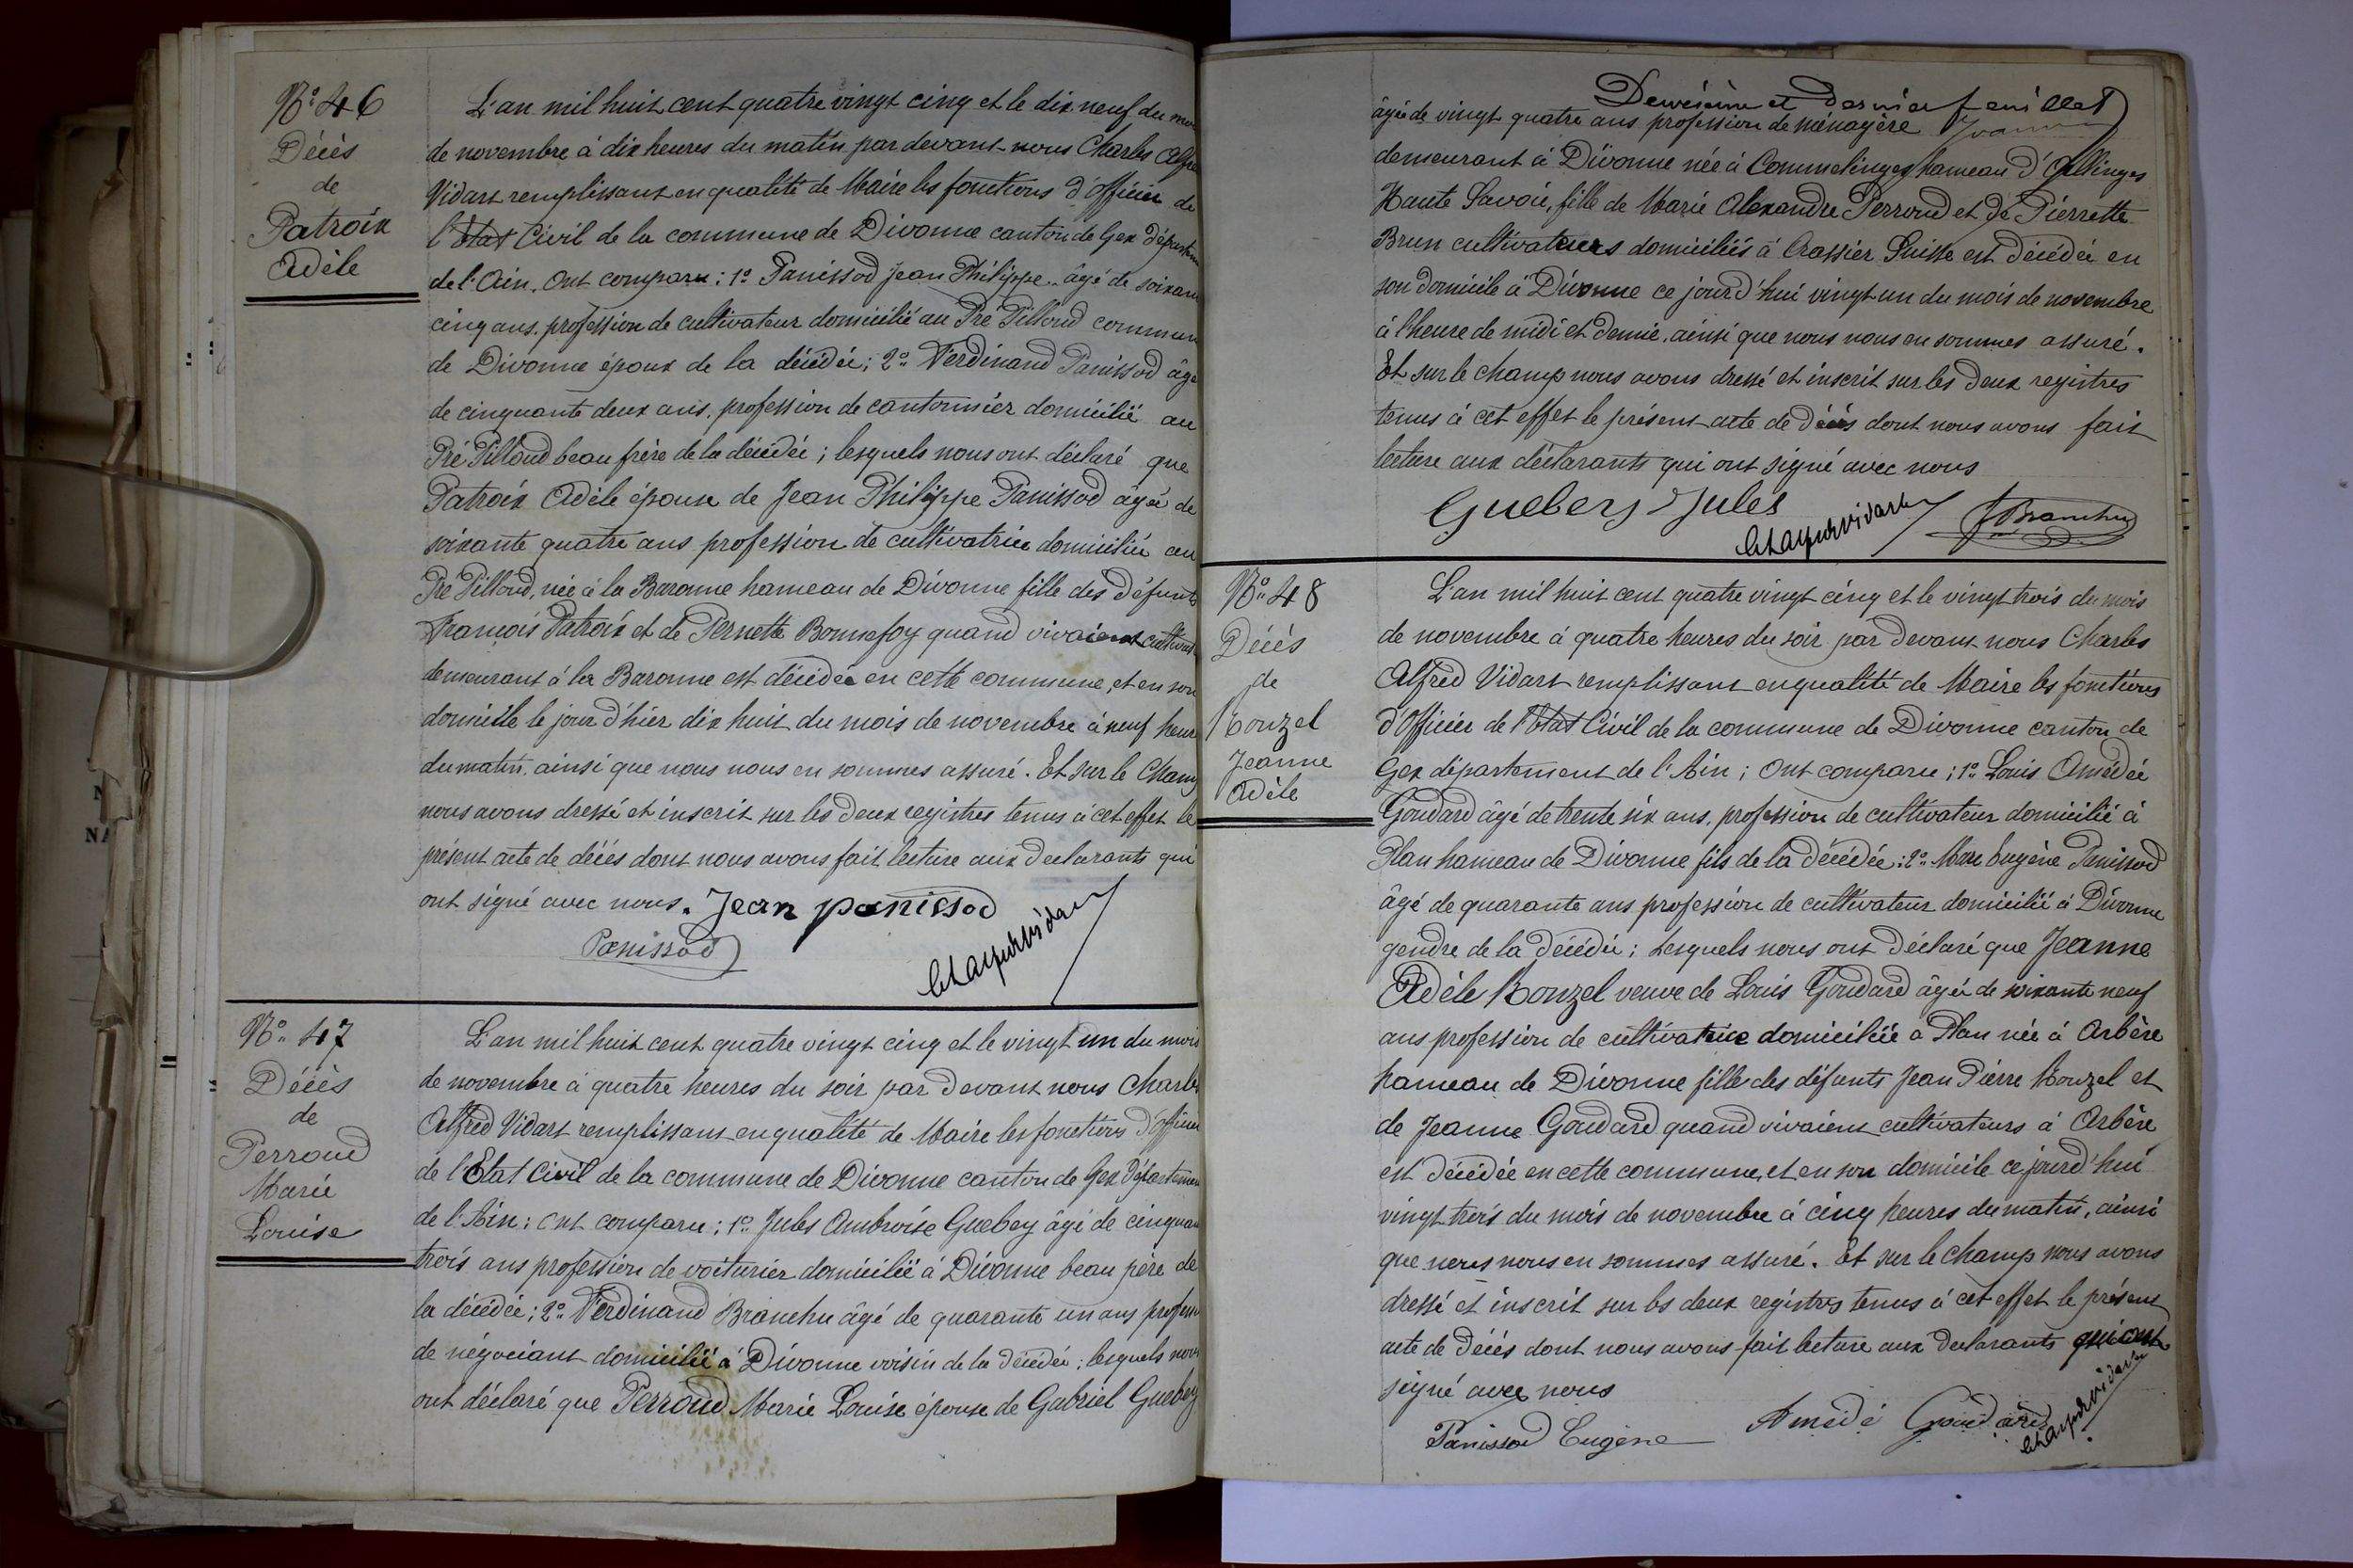 N° 46
Décès
de
Patroix
Adèle
L'an mil huit cent quatre vingt cinq et le dix neuf du
de novembre à dix heures du matin par devant nous Charles
Vidart remplissant en qualité de Maire les fonctions d'officier de
l'Etat Civil de la commune de Divonne canton de Gex
de l'Ain. Ont comparu : 1° Panissod Jean Philippe, âgé de
cinq ans, profession de cultivateur domicilié au Pré Pilloud
de Divonne époux de la décédée ; 2° Ferdinand Panissod
de cinquante deux ans, profession de cantonnier domicilié au
Pré Pilloud beau frère de la décédée ; lesquels nous ont déclaré que
Patroix Adèle épouse de Jean Philippe Panissod âgée de
soixante quatre ans profession de cultivatrice domiciliée au
Pré Pilloud, née à la Baronne hameau de Divonne fille des défunts
François Patroix et de Pernette Bonnefoy quand vivaient
demeurant à la Baronne est décédée en cette commune, et en son
domicile le jour d'hier dix huit du mois de novembre à neuf
du matin, ainsi que nous nous en sommes assuré. Et sur le
nous avons dressé et inscrit sur les deux registres tenus à cet effet le
présent acte de décès dont nous avons fait lecture aux declarants qui
ont signé avec nous. Jean panissod
Panissod
N° 47
Décès
de
Perroud
Marie
Louise
L'an mil huit cent quatre vingt cinq et le vingt un du mois
de novembre à quatre heures du soir par devant nous Charles
Alfred Vidart remplissant en qualité de Maire les fonctions
de l'Etat Civil de la commune de Divonne canton de Gex
de l'Ain : Ont comparu : 1° Jules Ambroise Guebey âgé de
trois ans profession de voiturier domicilié à Divonne beau père de
la décédée ; 2° Ferdinand Branchu âgé de quarante un ans
de négociant domicilié à Divonne voisin de la décédée ; lesquels
ont déclaré que Perroud Marie Louise épouse de Gabriel Guebey
Deuxième et dernier feuillet
âgée de vingt quatre ans profession de ménagère
demeurant à Divonne née à Commelinges hameau d'Allinges
Haute Savoie, fille de Marie Alexandre Perroud et de Pierrette
Brun cultivateurs domiciliés à Crassier Suisse est décédée en
son domicile à Divonne ce jourd'hui vingt un du mois de novembre
à l'heure de midi et demie, ainsi que nous nous en sommes assuré.
Et sur le champ nous avons dressé et inscrit sur les deux registres
tenus à cet effet le présent acte de décès dont nous avons fait
lecture aux déclarants qui ont signé avec nous
Guebey Jules
Branchu
N° 48
Décès
de
Rouzel
Jeanne
Adèle
L'an mil huit cent quatre vingt cinq et le vingt trois du mois
de novembre à quatre heures du soir par devant nous Charles
Alfred Vidart remplissant en qualité de Maire les fonctions
d'Officier de l'Etat Civil de la commune de Divonne canton de
Gex département de l'Ain ; Ont comparu ; 1° Louis Amédée
Goudard âgé de trente six ans, profession de cultivateur domicilié à
Plan hameau de Divonne fils de la décédée : 2° Marc Eugène Panissod
âgé de quarante ans profession de cultivateur domicilié à Divonne
gendre de la décédée ; Lesquels nous ont déclaré que Jeanne
Adèle Rouzel veuve de Louis Goudard âgée de soixante neuf
ans profession de cultivatrice domiciliée à Plan née à Arbère
hameau de Divonne fille des défunts Jean Pierre Rouzel et
de Jeanne Goudard quand vivaient cultivateurs à Arbère
est décédée en cette commune, et en son domicile ce jourd'hui
vingt trois du mois de novembre à cinq heures du matin, ainsi
que nous nous en sommes assuré. Et sur le champ nous avons
dressé et inscrit sur les deux registres tenus à cet effet le présent
acte de décès dont nous avons fait lecture aux declarants qui ont
signé avec nous
Panissod Eugène Amédé Goudard